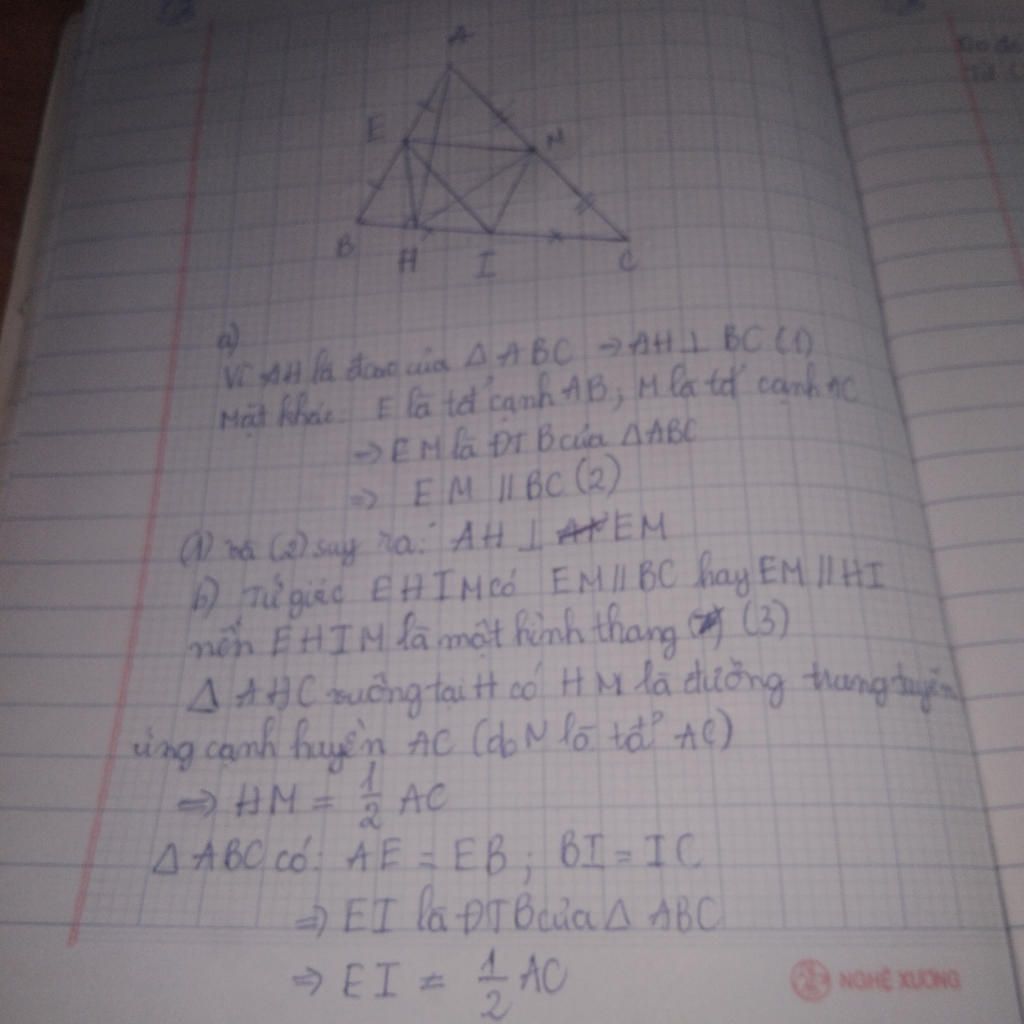 A
E
M
B
H
I
C
a)
Vì AH là đcao của Δ ABC → AH ⊥ BC (1)
Mặt khác: E là tđ' cạnh AB; M là tđ' cạnh AC
→ EM là ĐTB của ΔABC
⇒ EM // BC (2)
(1) và (2) suy ra: AH ⊥ EM
b) Tứ giác EHIM có EM // BC hay EM // HI
nên EHIM là một hình thang (3)
Δ AHC vuông tại H có HM là đường trung tuyến
ứng cạnh huyền AC (do M là tđ' AC)
⇒ HM = 1/2 AC
Δ ABC có: AE = EB; BI = IC
⇒ EI là ĐTB của Δ ABC
⇒ EI = 1/2 AC
NGHÊ XƯƠNG